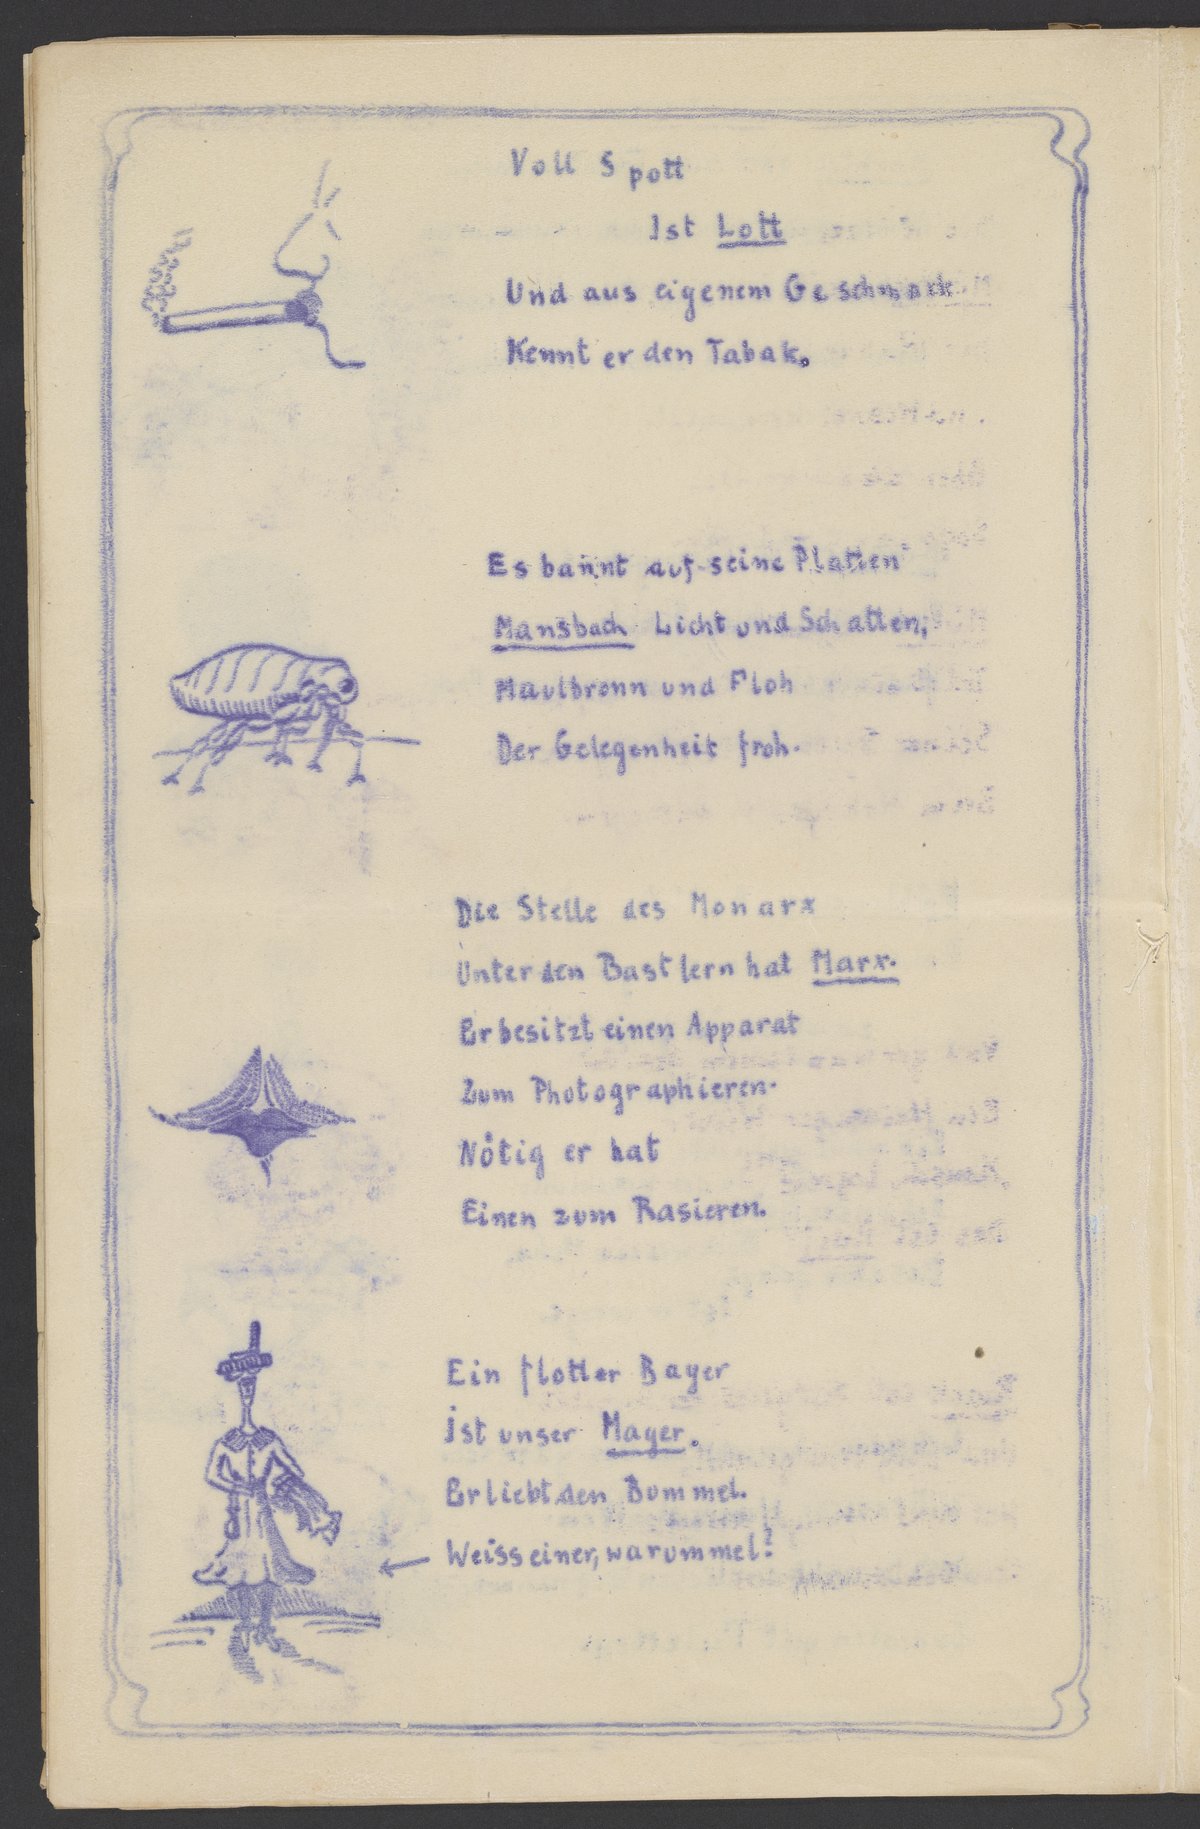 Voll Spott
Ist Lott
Und aus eigenem Geschmack
Kennt er den Tabak.
Es bannt auf seine Platten
Mansbach Licht und Schatten,
Maulbronn und Floh
Der Gelegenheit froh.
Die Stelle des Monarx
Unter den Bastlern hat Marx.
Er besitzt einen Apparat
Zum Photographieren.
Nötig er hat
Einen zum Rasieren.
Ein flotter Bayer
ist unser Mayer.
Er liebt den Bummel.
Weiss einer, warummel?